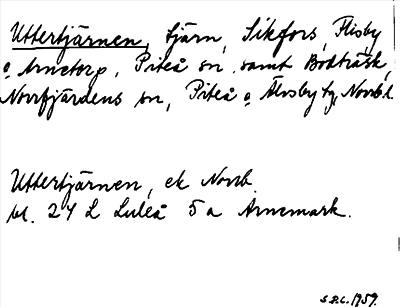 Uttertjärnen, tjärn, Sikfors, Flisby
o Arnetorp, Piteå sn samt Bodträsk,
Norrfjärdens sn, Piteå o Älvsby tg Norrb. l.
Uttertjärnen, ek Norrb.
bl. 24 L Luleå 5 a Arnemark.
S.B.L. 1959.